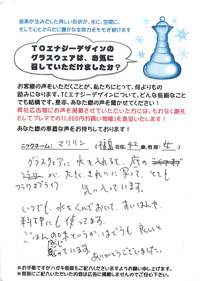 音楽が生みだした美しい形状が、水に、空間に、
そして心とからだに豊かな生命力をそそぎ続けます
TCエナジーデザインの
グラスウェアは、お気に
召していただけましたか?
お客様の声をいただくことが、私たちにとって、何よりもの
励みになります。TCエナジーデザインについて、どんな些細なこと
でも結構です。是非、あなたの声をお聞かせください!
弊社広告等にお声を掲載させていただいた方には、もれなく謝礼
としてプレマでの「1,000円お買い物券」を進呈いたします!
あなたの率直なお声をお待ちしております!
ニックネーム: マリリン (福島 在住、 歳、性別: 女)
グラスウェアに 水を入れると、
きれいに 、とても
気に入っています。
いつも、水をくんでおいて、すいはんや、
料理にも 使ってます。
ごはんの味というか、はずみも 美しいと
感じています。
ありがとうございました。
※お手数ですがハガキ各面もご記入くださいますようお願い申し上げます。
※表面にご記入いただいた内容は広告に掲載しませんのでご安心ください。